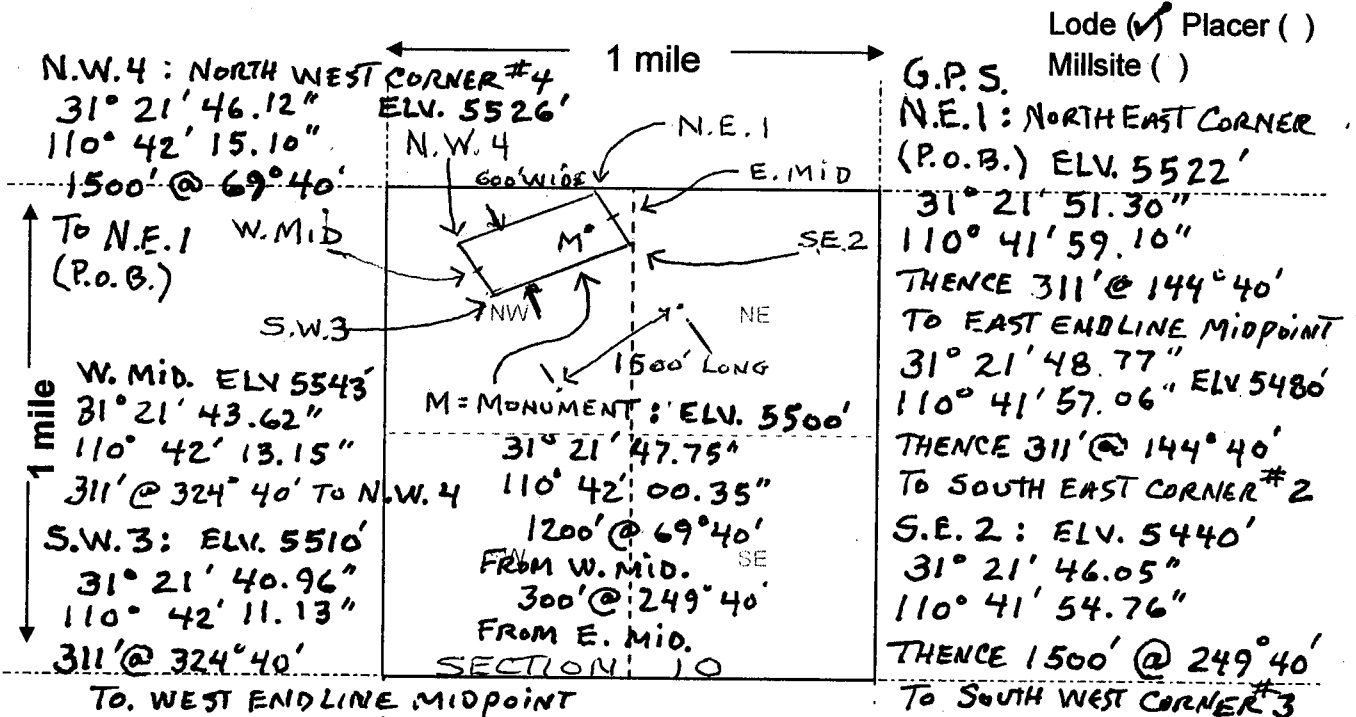 Lode (✓) Placer ( )
Millsite ( )
1 mile
N.W.4 : NORTH WEST CORNER #4
31° 21' 46.12" ELV. 5526'
110° 42' 15.10"
1500' @ 69°40'
TO N.E.1
(P.O.B.)
W. MID. ELV 5543'
31° 21' 43.62"
110° 42' 13.15"
311' @ 324°40' TO N.W.4
S.W.3: ELV. 5510'
31° 21' 40.96"
110° 42' 11.13"
311' @ 324°40'
TO. WEST ENDLINE MIDPOINT
1 mile
N.W.4
N.E.1
600' WIDE
E. MID
W. MID
M
S.E.2
S.W.3
NW
NE
1500' LONG
M = MONUMENT : ELV. 5500'
31° 21' 47.75"
110° 42' 00.35"
1200' @ 69°40'
FROM W. MID.
SE
300' @ 249°40'
FROM E. MID.
SECTION 10
G.P.S.
N.E.1 : NORTH EAST CORNER
(P.O.B.) ELV. 5522'
31° 21' 51.30"
110° 41' 59.10"
THENCE 311' @ 144°40'
TO EAST ENDLINE MIDPOINT
31° 21' 48.77"
110° 41' 57.06" ELV. 5480'
THENCE 311' @ 144°40'
TO SOUTH EAST CORNER #2
S.E.2 : ELV. 5440'
31° 21' 46.05"
110° 41' 54.76"
THENCE 1500' @ 249°40'
TO SOUTH WEST CORNER #3